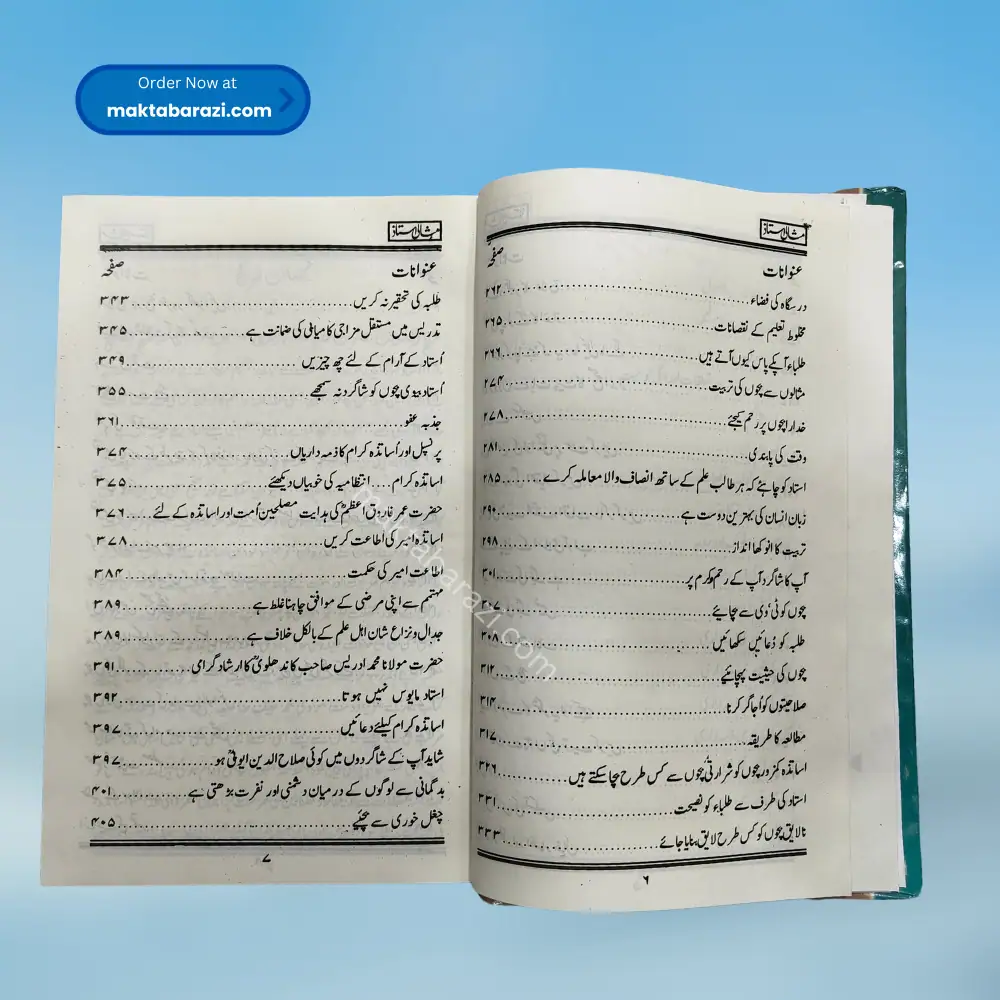 Order Now at
maktabarazi.com
مثالی استاذ
عنوانات صفحہ
درسگاہ کی فضاء ۲۶۲
مخلوط تعلیم کے نقصانات ۲۶۵
طلباء آپکے پاس کیوں آتے ہیں ۲۶۶
مثالوں سے بچوں کی تربیت ۲۷۴
خدارا بچوں پر رحم کیجئے ۲۷۸
وقت کی پابندی ۲۸۱
استاد کو چاہئے کہ ہر طالب علم کے ساتھ انصاف والا معاملہ کرے ۲۸۵
زبان انسان کی بہترین دوست ہے ۲۹۰
تربیت کا انوکھا انداز ۲۹۸
آپ کا شاگرد آپ کے رحم و کرم پر ۳۰۱
بچوں کو ٹی وی سے بچائیے ۳۰۷
طلبہ کو دُعائیں سکھائیں ۳۰۸
بچوں کی حیثیت پہچانیے ۳۱۲
صلاحیتوں کو اُجاگر کرنا ۳۱۴
مطالعہ کا طریقہ ۳۱۷
اساتذہ کمزور بچوں کو شرارتی بچوں سے کس طرح بچا سکتے ہیں ۳۲۶
استاد کی طرف سے طلباء کو نصیحت ۳۳۱
نالایق بچوں کو کس طرح لایق بنایا جائے ۳۳۳
۶
مثالی استاذ
عنوانات صفحہ
طلبہ کی تحقیر نہ کریں ۳۴۳
تدریس میں مستقل مزاجی کامیابی کی ضمانت ہے ۳۴۵
اُستاد کے آرام کے لئے چھ چیزیں ۳۴۹
اُستاد بیوی بچوں کو شاگرد نہ سمجھے ۳۵۵
جذبہ عفو ۳۶۱
پرنسپل اور اُساتذہ کرام کا ذمہ داریاں ۳۷۴
اساتذہ کرام .... انتظامیہ کی خوبیاں دیکھئے ۳۷۵
حضرت عمر فاروق اعظمؓ کی ہدایت مصلحین اُمت اور اساتذہ کے لئے ۳۷۶
اساتذہ امیر کی اطاعت کریں ۳۷۸
اطاعت امیر کی حکمت ۳۸۴
مہتمم سے اپنی مرضی کے موافق چاہنا غلط ہے ۳۸۹
جدال و نزاع شان اہل علم کے بالکل خلاف ہے ۳۸۹
حضرت مولانا محمد ادریس صاحب کاندھلویؒ کا ارشاد گرامی ۳۹۱
استاد مایوس نہیں ہوتا ۳۹۲
اساتذہ کرام کیلئے دعائیں ۳۹۷
شاید آپ کے شاگردوں میں کوئی صلاح الدین ایوبیؒ ہو ۳۹۷
بدگمانی سے لوگوں کے درمیان دشمنی اور نفرت بڑھتی ہے ۴۰۱
چغل خوری سے بچئیے ۴۰۵
۷
maktabarazi.com